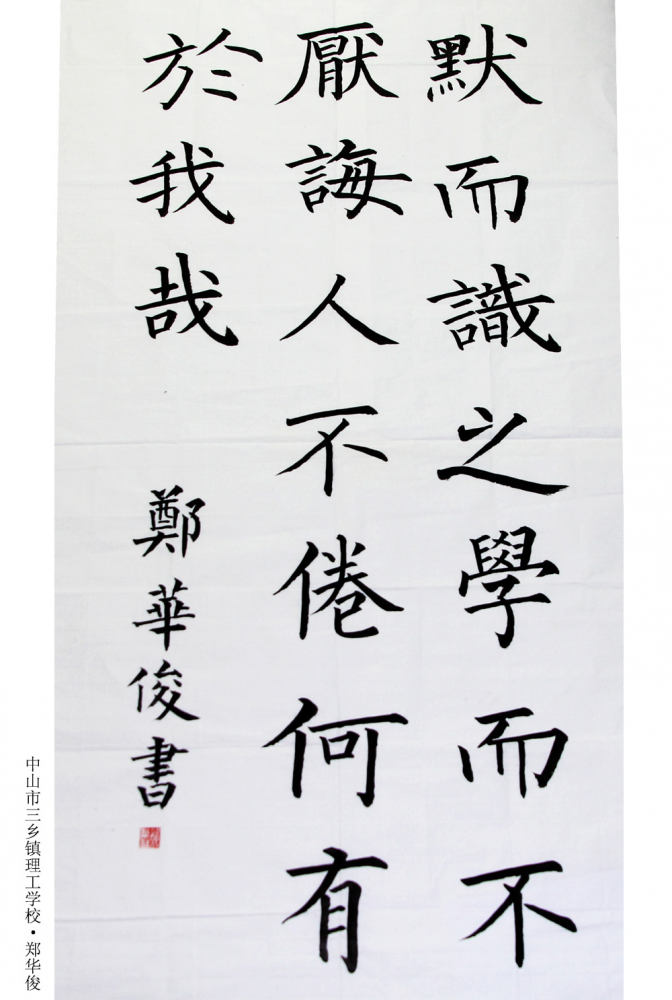 默而識之學而不
厭誨人不倦何有
於我哉
鄭華俊書
中山市三乡镇理工学校·郑华俊